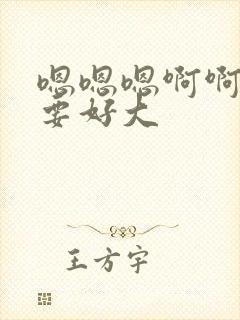 嗯嗯嗯啊啊
要好大
王方宇